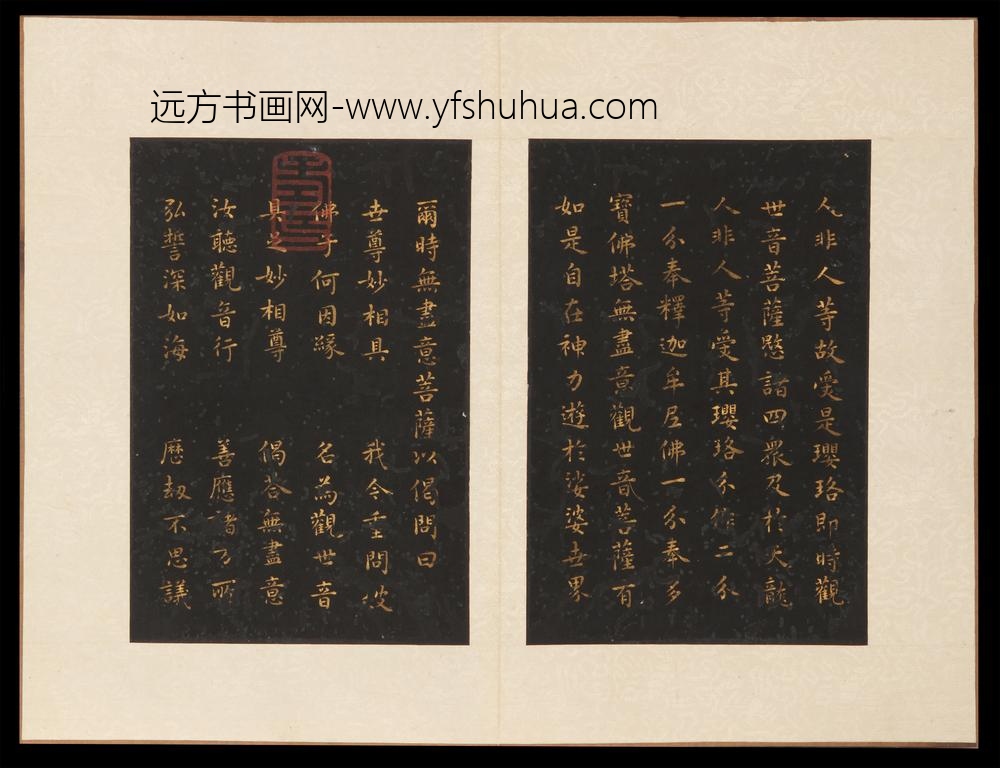 远方书画网-www.yfshuhua.com
人非人等故受是瓔珞即時觀
世音菩薩愍諸四眾及於天龍
人非人等受其瓔珞分作二分
一分奉釋迦牟尼佛一分奉多
寶佛塔無盡意觀世音菩薩有
如是自在神力遊於娑婆世界
爾時無盡意菩薩以偈問曰
世尊妙相具 我今重問彼
佛子何因緣 名為觀世音
具足妙相尊 偈答無盡意
汝聽觀音行 善應諸方所
弘誓深如海 歷劫不思議